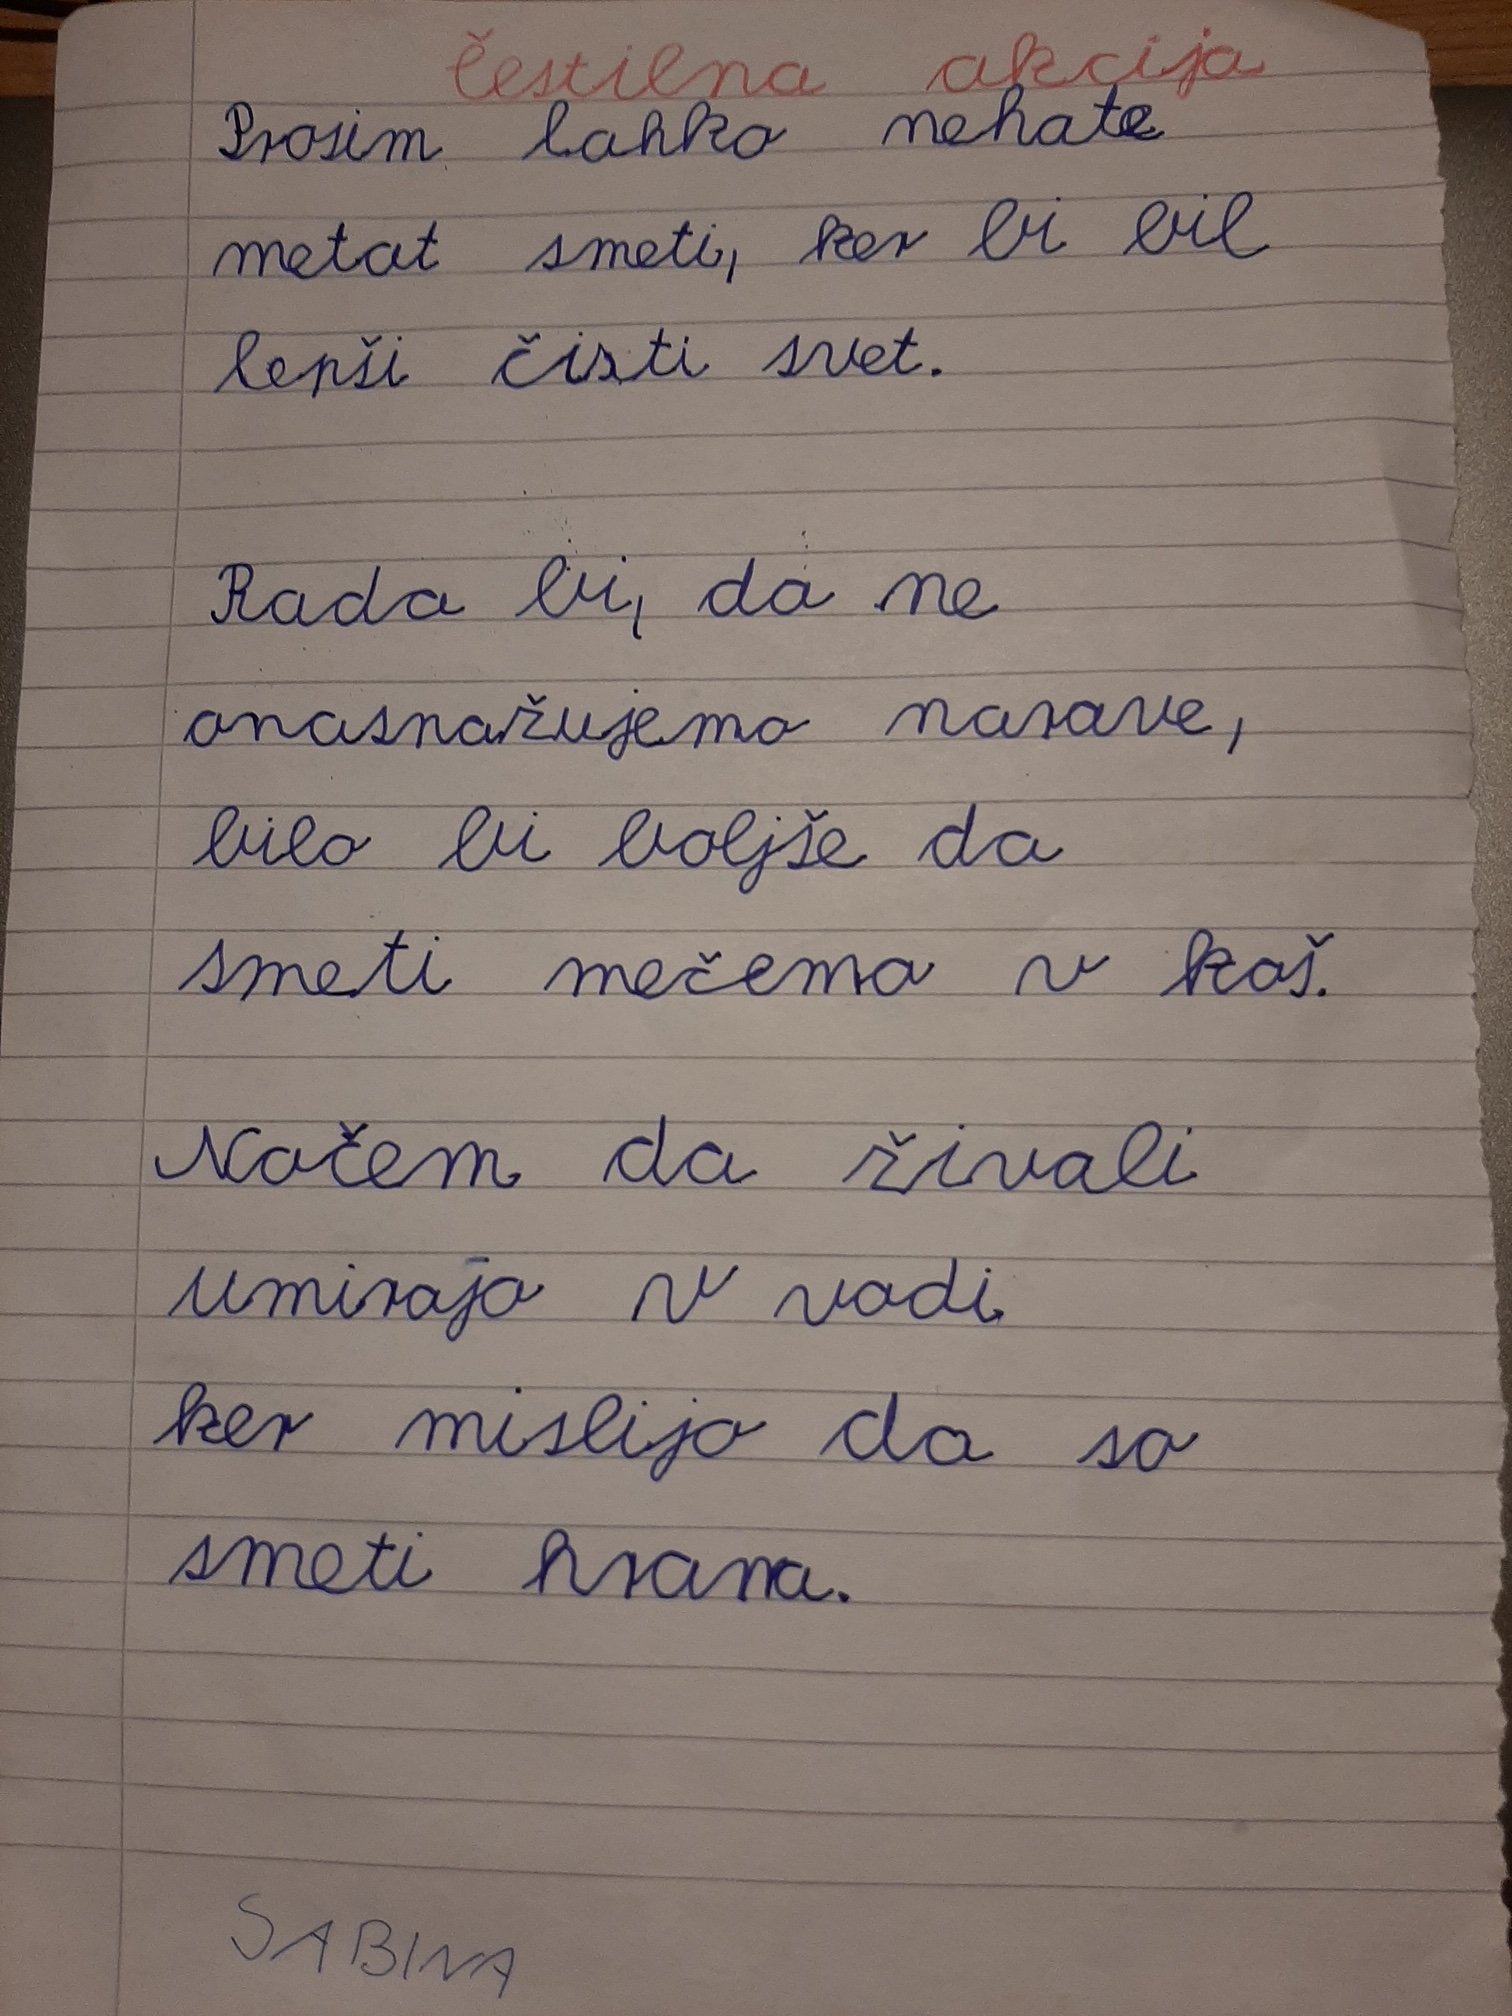 Čestilna akcija
Prosim lahko nehate
metat smeti, ker bi bil
lepši čisti svet.
Rada bi, da ne
onasnažujemo narave,
bilo bi boljše da
smeti mečemo v koš.
Nočem da živali
umirajo v vodi
ker mislijo da so
smeti hrana.
SABINA